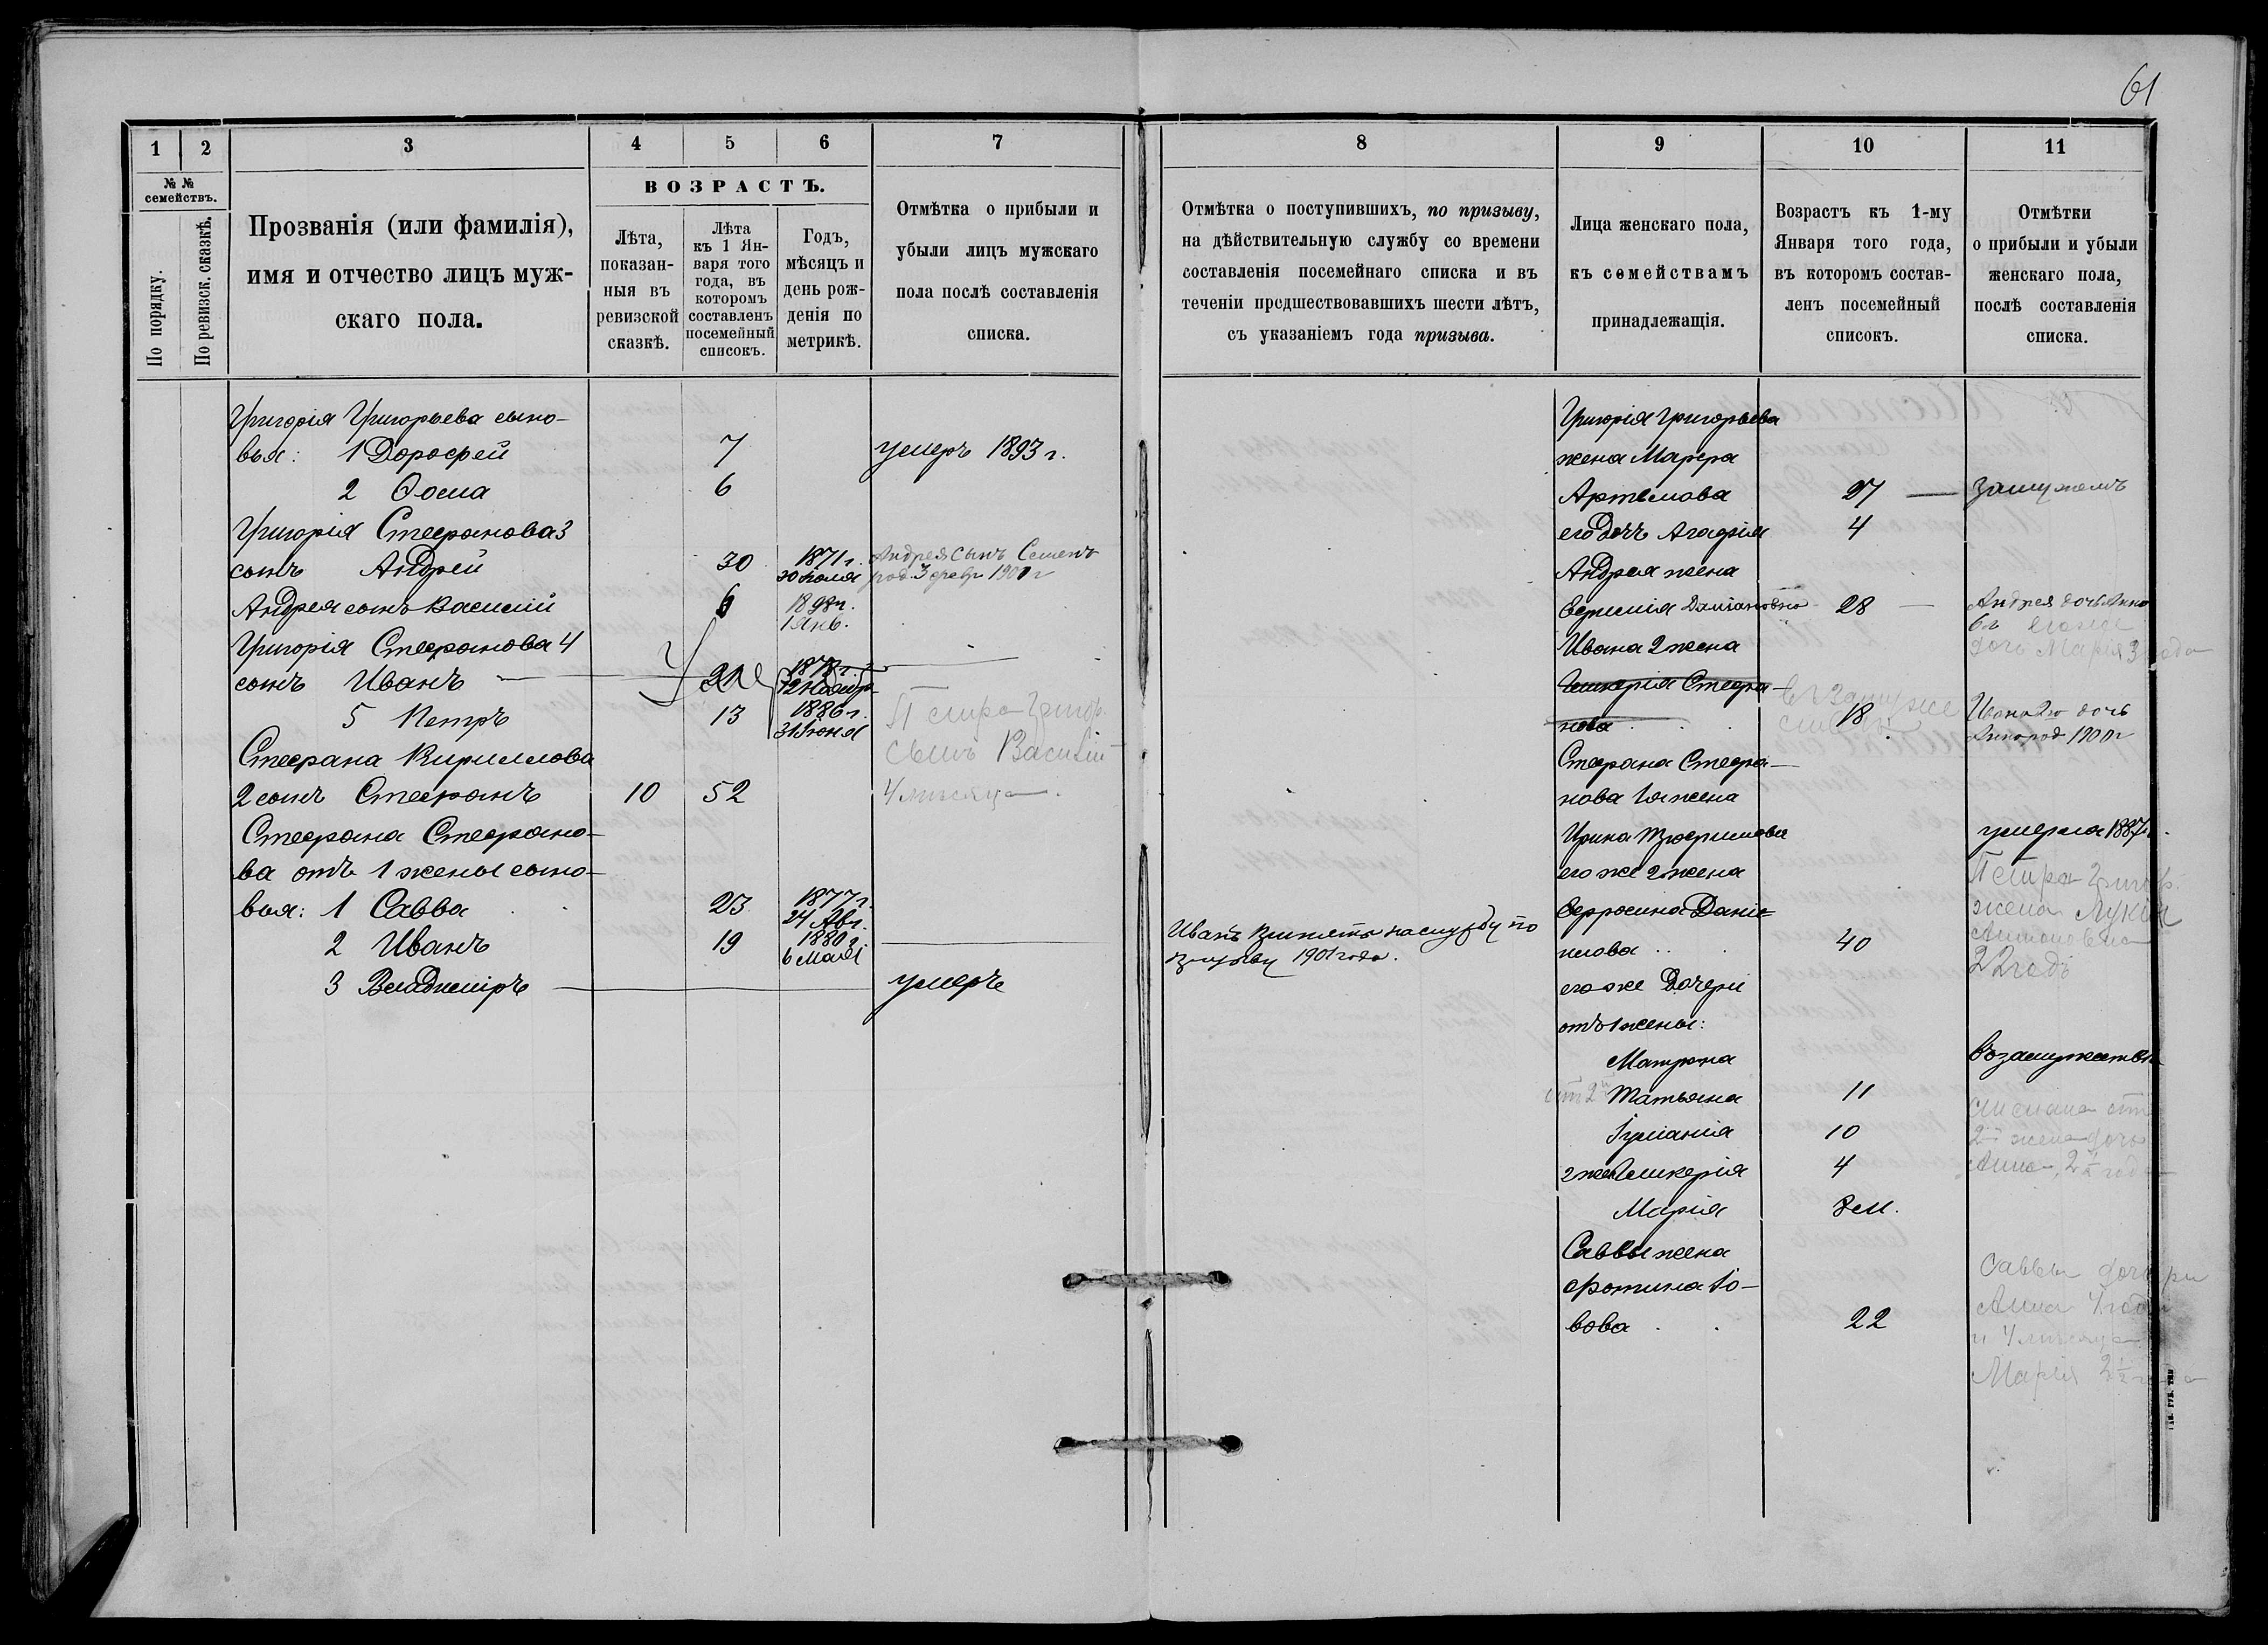 61
1
2
3
4
5
6
7
№ №
семействъ.
По порядку.
По ревизск. сказкѣ.
Прозванія (или фамилія),
имя и отчество лицъ муж-
скаго пола.
ВОЗРАСТЪ.
Лѣта,
показан-
ныя въ
ревизской
сказкѣ.
Лѣта
къ 1 Ян-
варя того
года, въ
котором
составленъ
посемейный
списокъ.
Годъ,
мѣсяцъ и
день рож-
денія по
метрикѣ.
Отмѣтка о прибыли и
убыли лицъ мужскаго
пола послѣ составленія
списка.
Григорія Григорьева сыно-
вья: 1 Дорофей 7 умеръ 1893 г.
2 Ѳома 6
Григорія Стефанова 3
сынъ Андрей 30 1871 г. Андрея сынъ Семенъ
30 Іюля род 3 февр 1901 г
Андрея сынъ Василій 6 1898 г.
1 Янв.
Григорія Стефанова 4
сынъ Иванъ 21
5 Петръ 13 1886 г. Петра Григор.
31 Іюня сынъ Василій
Стефана Кириллова
2 сынъ Стефанъ 10 52 4 мѣсяца
Стефана Стефано-
ва отъ 1 жены сыно-
вья: 1 Савва 23 1877 г.
24 Авг.
2 Иванъ 19 1880 г.
6 Мая
3 Владиміръ умеръ
8
9
10
11
Отмѣтка о поступившихъ, по призыву,
на дѣйствительную службу со времени
составленія посемейнаго списка и въ
теченіи предшествовавшихъ шести лѣтъ,
съ указаніемъ года призыва.
Лица женскаго пола,
къ семействамъ
принадлежащія.
Возрастъ къ 1-му
Января того года,
въ которомъ состав-
ленъ посемейный
списокъ.
Отмѣтки
о прибыли и убыли
женскаго пола,
послѣ составленія
списка.
Григорія Григорьева
жена Марфа
Артемова 27 замужемъ
его дочь Агафія 4
Андрея жена
Евфимія Даміановна 28 Андрея дочь Анна
6 л его же
Ивана 2 жена дочь Марія 3 года
Гликерія Стефа-
нова 18 Ивана 2го дочь
Анна род 1900 г
Стефана Стефа-
нова 1я жена
Ирина Трофимова умерла 1887 г.
его же 2 жена Петра Григор.
Евфросина Дані- жена Лукія
Иванъ принятъ на службу по
призыву 1901 года.
илова 40 Антоновна
22 годъ
его же дочери
отъ 1 жены:
Матрона въ замужествѣ
от 2й Татьяна 11
Іуліанія 10 2й жена дочь
2 жен Гликерія 4 Анна, 2½ года
Марія 8 м.
Саввы жена
Фотина Іо- Саввы дочери
вова 22 Анна 4 года
и 4 мѣсяца
Марія 2½